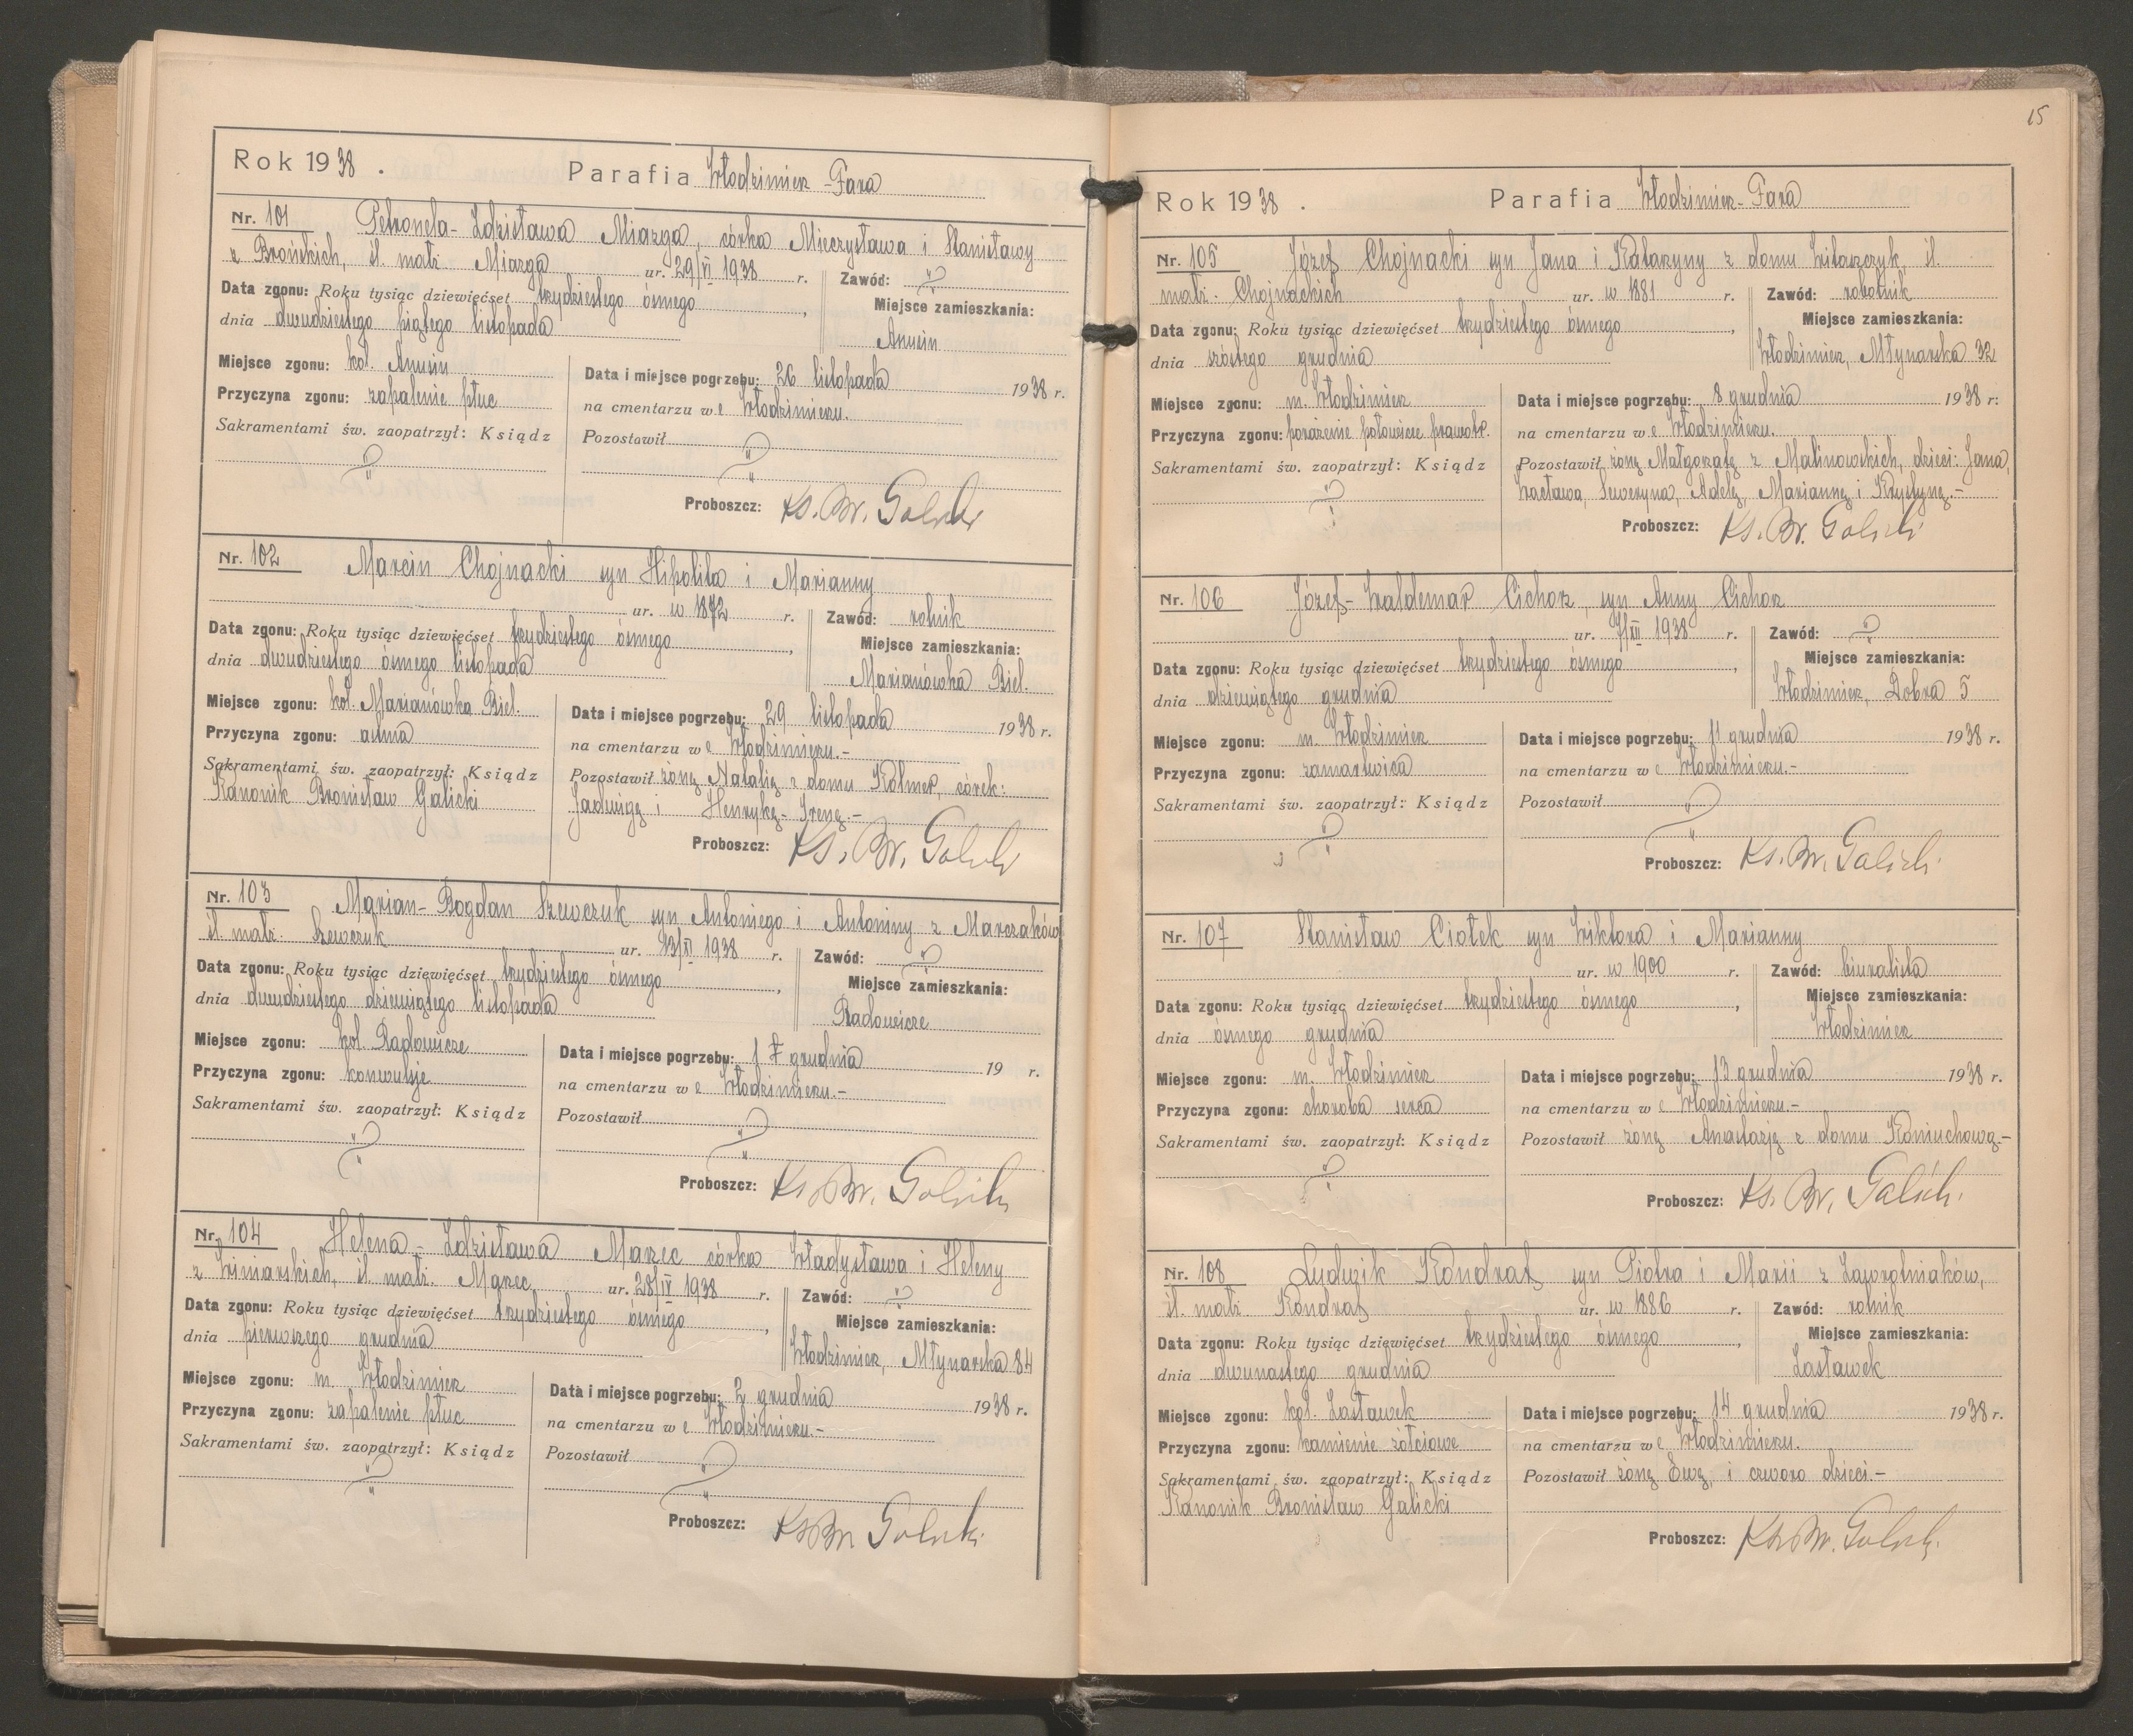 Rok 1938 . Parafia Włodzimierz - Fara
Nr. 101 Petronela - Zdzisława Miazga, córka Mieczysława i Stanisławy
z Brońskich, śl. małż. Miazga ur. 29/VI 1938 r. Zawód:
Data zgonu: Roku tysiąc dziewięćset trzydziestego ósmego, Miejsce zamieszkania:
dnia dwudziestego piątego listopada Anusin
Miejsce zgonu: kol. Anusin Data i miejsce pogrzebu: 26 listopada 1938 r.
Przyczyna zgonu: zapalenie płuc na cmentarzu we Włodzimierzu.
Sakramentami św. zaopatrzył: Ksiądz Pozostawił
Proboszcz: Ks. Br. Galicki
Nr. 102 Marcin Chojnacki syn Hipolita i Marianny
ur. w 1872 r. Zawód: rolnik
Data zgonu: Roku tysiąc dziewięćset trzydziestego ósmego, Miejsce zamieszkania:
dnia dwudziestego ósmego listopada Marianówka Biel.
Miejsce zgonu: kol. Marianówka Biel. Data i miejsce pogrzebu: 29 listopada 1938 r.
Przyczyna zgonu: astma na cmentarzu we Włodzimierzu.-
Sakramentami św. zaopatrzył: Ksiądz Pozostawił żonę Natalię z domu Kolmer, córek:
Kanonik Bronisław Galicki Jadwigę i Henrykę - Irenę.-
Proboszcz: Ks. Br. Galicki
Nr. 103 Marian - Bogdan Szewczuk syn Antoniego i Antoniny z Marczaków
śl. małż. Szewczuk ur. 13/XI 1938 r. Zawód:
Data zgonu: Roku tysiąc dziewięćset trzydziestego ósmego, Miejsce zamieszkania:
dnia dwudziestego dziewiątego listopada Radowicze
Miejsce zgonu: kol. Radowicze Data i miejsce pogrzebu: 1 grudnia 19 r.
Przyczyna zgonu: konwulsje na cmentarzu we Włodzimierzu.-
Sakramentami św. zaopatrzył: Ksiądz Pozostawił
Proboszcz: Ks. Br. Galicki
Nr. 104 Helena - Zdzisława Marzec córka Władysława i Heleny
z Winiarskich, śl. małż. Marzec ur. 28/IV 1938 r. Zawód:
Data zgonu: Roku tysiąc dziewięćset trzydziestego ósmego, Miejsce zamieszkania:
dnia pierwszego grudnia Włodzimierz, Młynarska 84
Miejsce zgonu: m. Włodzimierz Data i miejsce pogrzebu: 2 grudnia 1938 r.
Przyczyna zgonu: zapalenie płuc na cmentarzu we Włodzimierzu.-
Sakramentami św. zaopatrzył: Ksiądz Pozostawił
Proboszcz: Ks. Br. Galicki
15
Rok 1938 . Parafia Włodzimierz - Fara
Nr. 105 Józef Chojnacki syn Jana i Katarzyny z domu Witaszczyk, śl.
małż. Chojnackich ur. w 1881 r. Zawód: robotnik
Data zgonu: Roku tysiąc dziewięćset trzydziestego ósmego, Miejsce zamieszkania:
dnia szóstego grudnia Włodzimierz, Młynarska 32
Miejsce zgonu: m. Włodzimierz Data i miejsce pogrzebu: 8 grudnia 1938 r.
Przyczyna zgonu: porażenie połowicze prawostr. na cmentarzu we Włodzimierzu.
Sakramentami św. zaopatrzył: Ksiądz Pozostawił żonę Małgorzatę z Malinowskich, dzieci: Jana,
Wacława, Seweryna, Adelę, Mariannę i Krystynę.-
Proboszcz: Ks. Br. Galicki
Nr. 106 Józef - Waldemar Cichorz, syn Anny Cichorz
ur. 7/XII 1938 r. Zawód:
Data zgonu: Roku tysiąc dziewięćset trzydziestego ósmego, Miejsce zamieszkania:
dnia dziewiątego grudnia Włodzimierz, Dobra 5
Miejsce zgonu: m. Włodzimierz Data i miejsce pogrzebu: 11 grudnia 1938 r.
Przyczyna zgonu: zamartwica na cmentarzu we Włodzimierzu.-
Sakramentami św. zaopatrzył: Ksiądz Pozostawił
Proboszcz: Ks. Br. Galicki
Nr. 107 Stanisław Ciołek syn Wiktora i Marianny
ur. w 1900 r. Zawód: biuralista
Data zgonu: Roku tysiąc dziewięćset trzydziestego ósmego, Miejsce zamieszkania:
dnia ósmego grudnia Włodzimierz
Miejsce zgonu: m. Włodzimierz Data i miejsce pogrzebu: 13 grudnia 1938 r.
Przyczyna zgonu: choroba serca na cmentarzu we Włodzimierzu.-
Sakramentami św. zaopatrzył: Ksiądz Pozostawił żonę Anastazję z domu Koniuchową.-
Proboszcz: Ks. Br. Galicki
Nr. 108 Ludwik Kondrat syn Piotra i Marii z Zawrotniaków,
śl. małż. Kondrat ur. w 1886 r. Zawód: rolnik
Data zgonu: Roku tysiąc dziewięćset trzydziestego ósmego, Miejsce zamieszkania:
dnia dwunastego grudnia Zastawek
Miejsce zgonu: kol. Zastawek Data i miejsce pogrzebu: 14 grudnia 1938 r.
Przyczyna zgonu: kamienie żółciowe na cmentarzu we Włodzimierzu.
Sakramentami św. zaopatrzył: Ksiądz Pozostawił żonę Ewę, i czworo dzieci.-
Kanonik Bronisław Galicki
Proboszcz: Ks. Br. Galicki